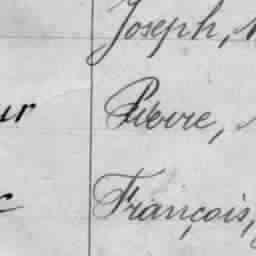 Joseph,
Pierre,
François,